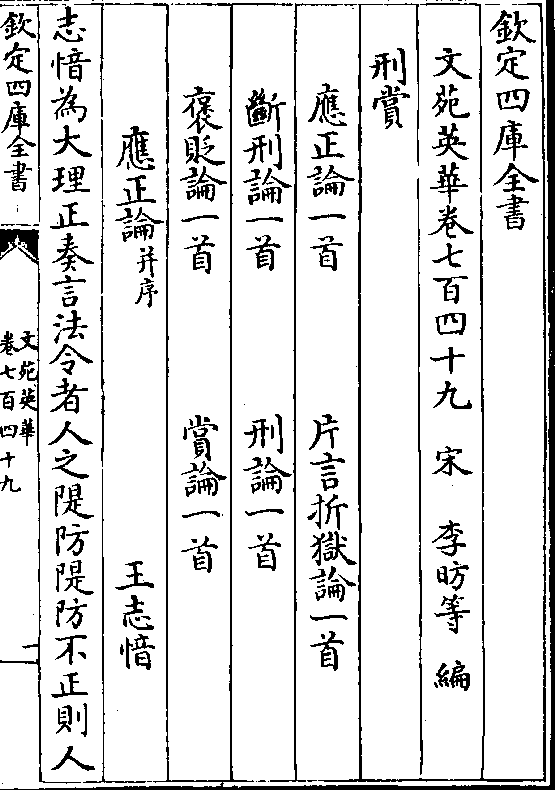 欽定四庫全書
文苑英華卷七百四十九 宋 李昉等 編
刑賞
應正論一首 片言折獄論一首
斷刑論一首 刑論一首
褒貶論一首 賞論一首
應正論并序 王志愔
志愔為大理正奏言法令者人之隄防隄防不正則人
欽定四庫全書
文苑英華
卷七百四十九
一